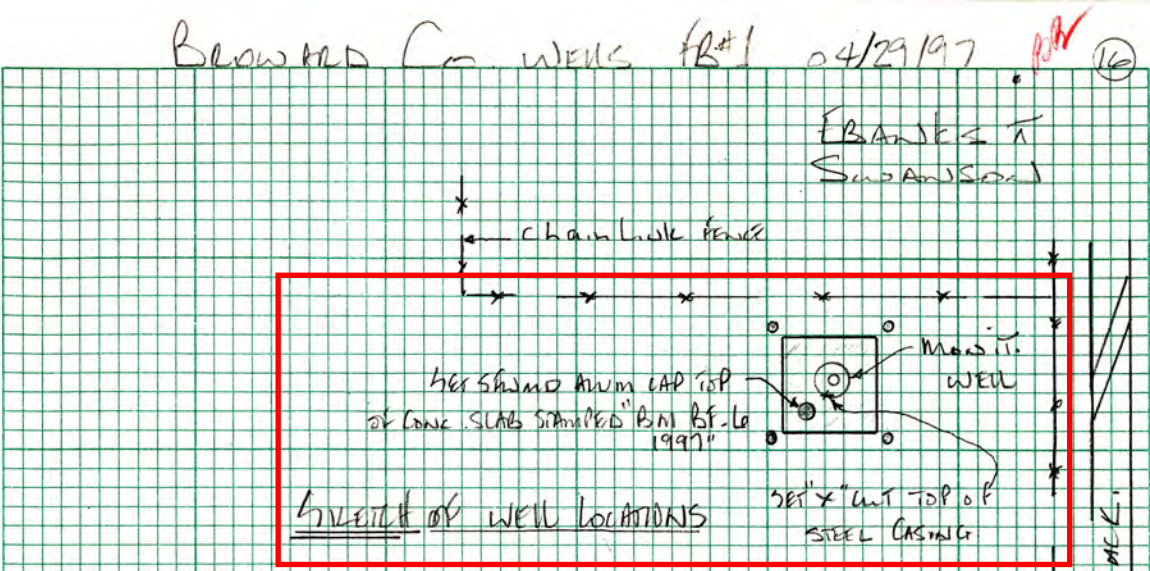 BROWARD Co. WELLS FB#1 04/29/97
16
EBANKS
SWANSON
Chain Link FENCE
MONIT.
WELL
SET SFWMD ALUM CAP TOP
OF CONC. SLAB STAMPED "BM BF-6
1997"
SET "X" CUT TOP OF
STEEL CASING
SKETCH OF WELL LOCATIONS